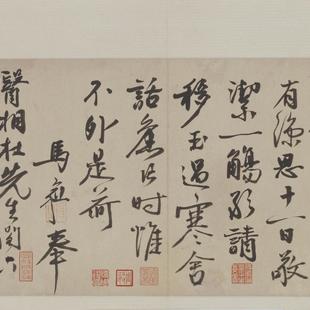 有源思十一日敬
潔一觴敬請
移玉過寒舍
話舊片時惟
不外是荷
馬愈奉
醫相杜先生閣下